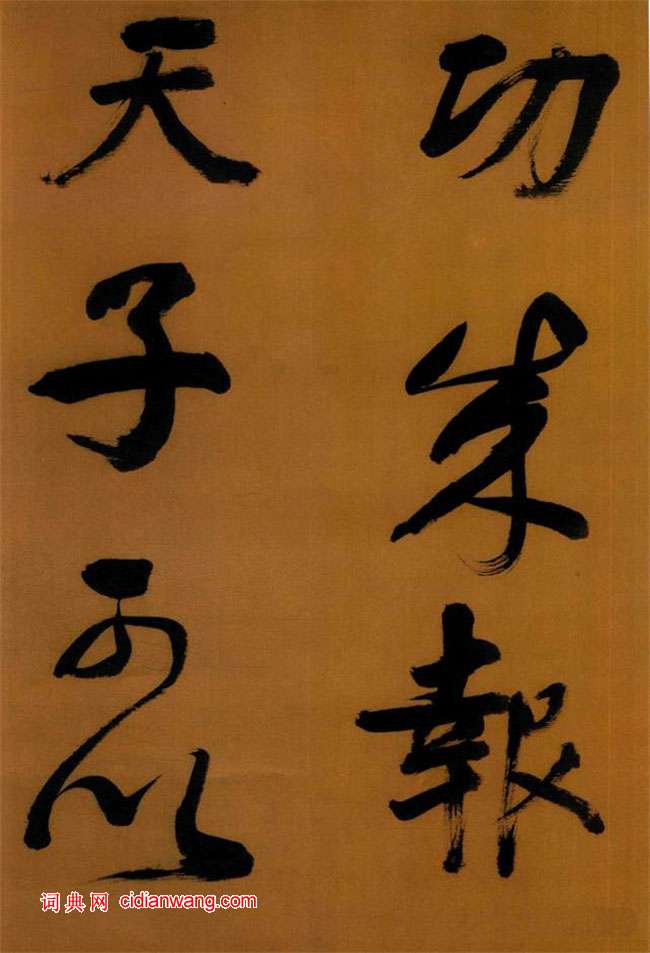 功成報
天子可以
词典网 cidianwang.com